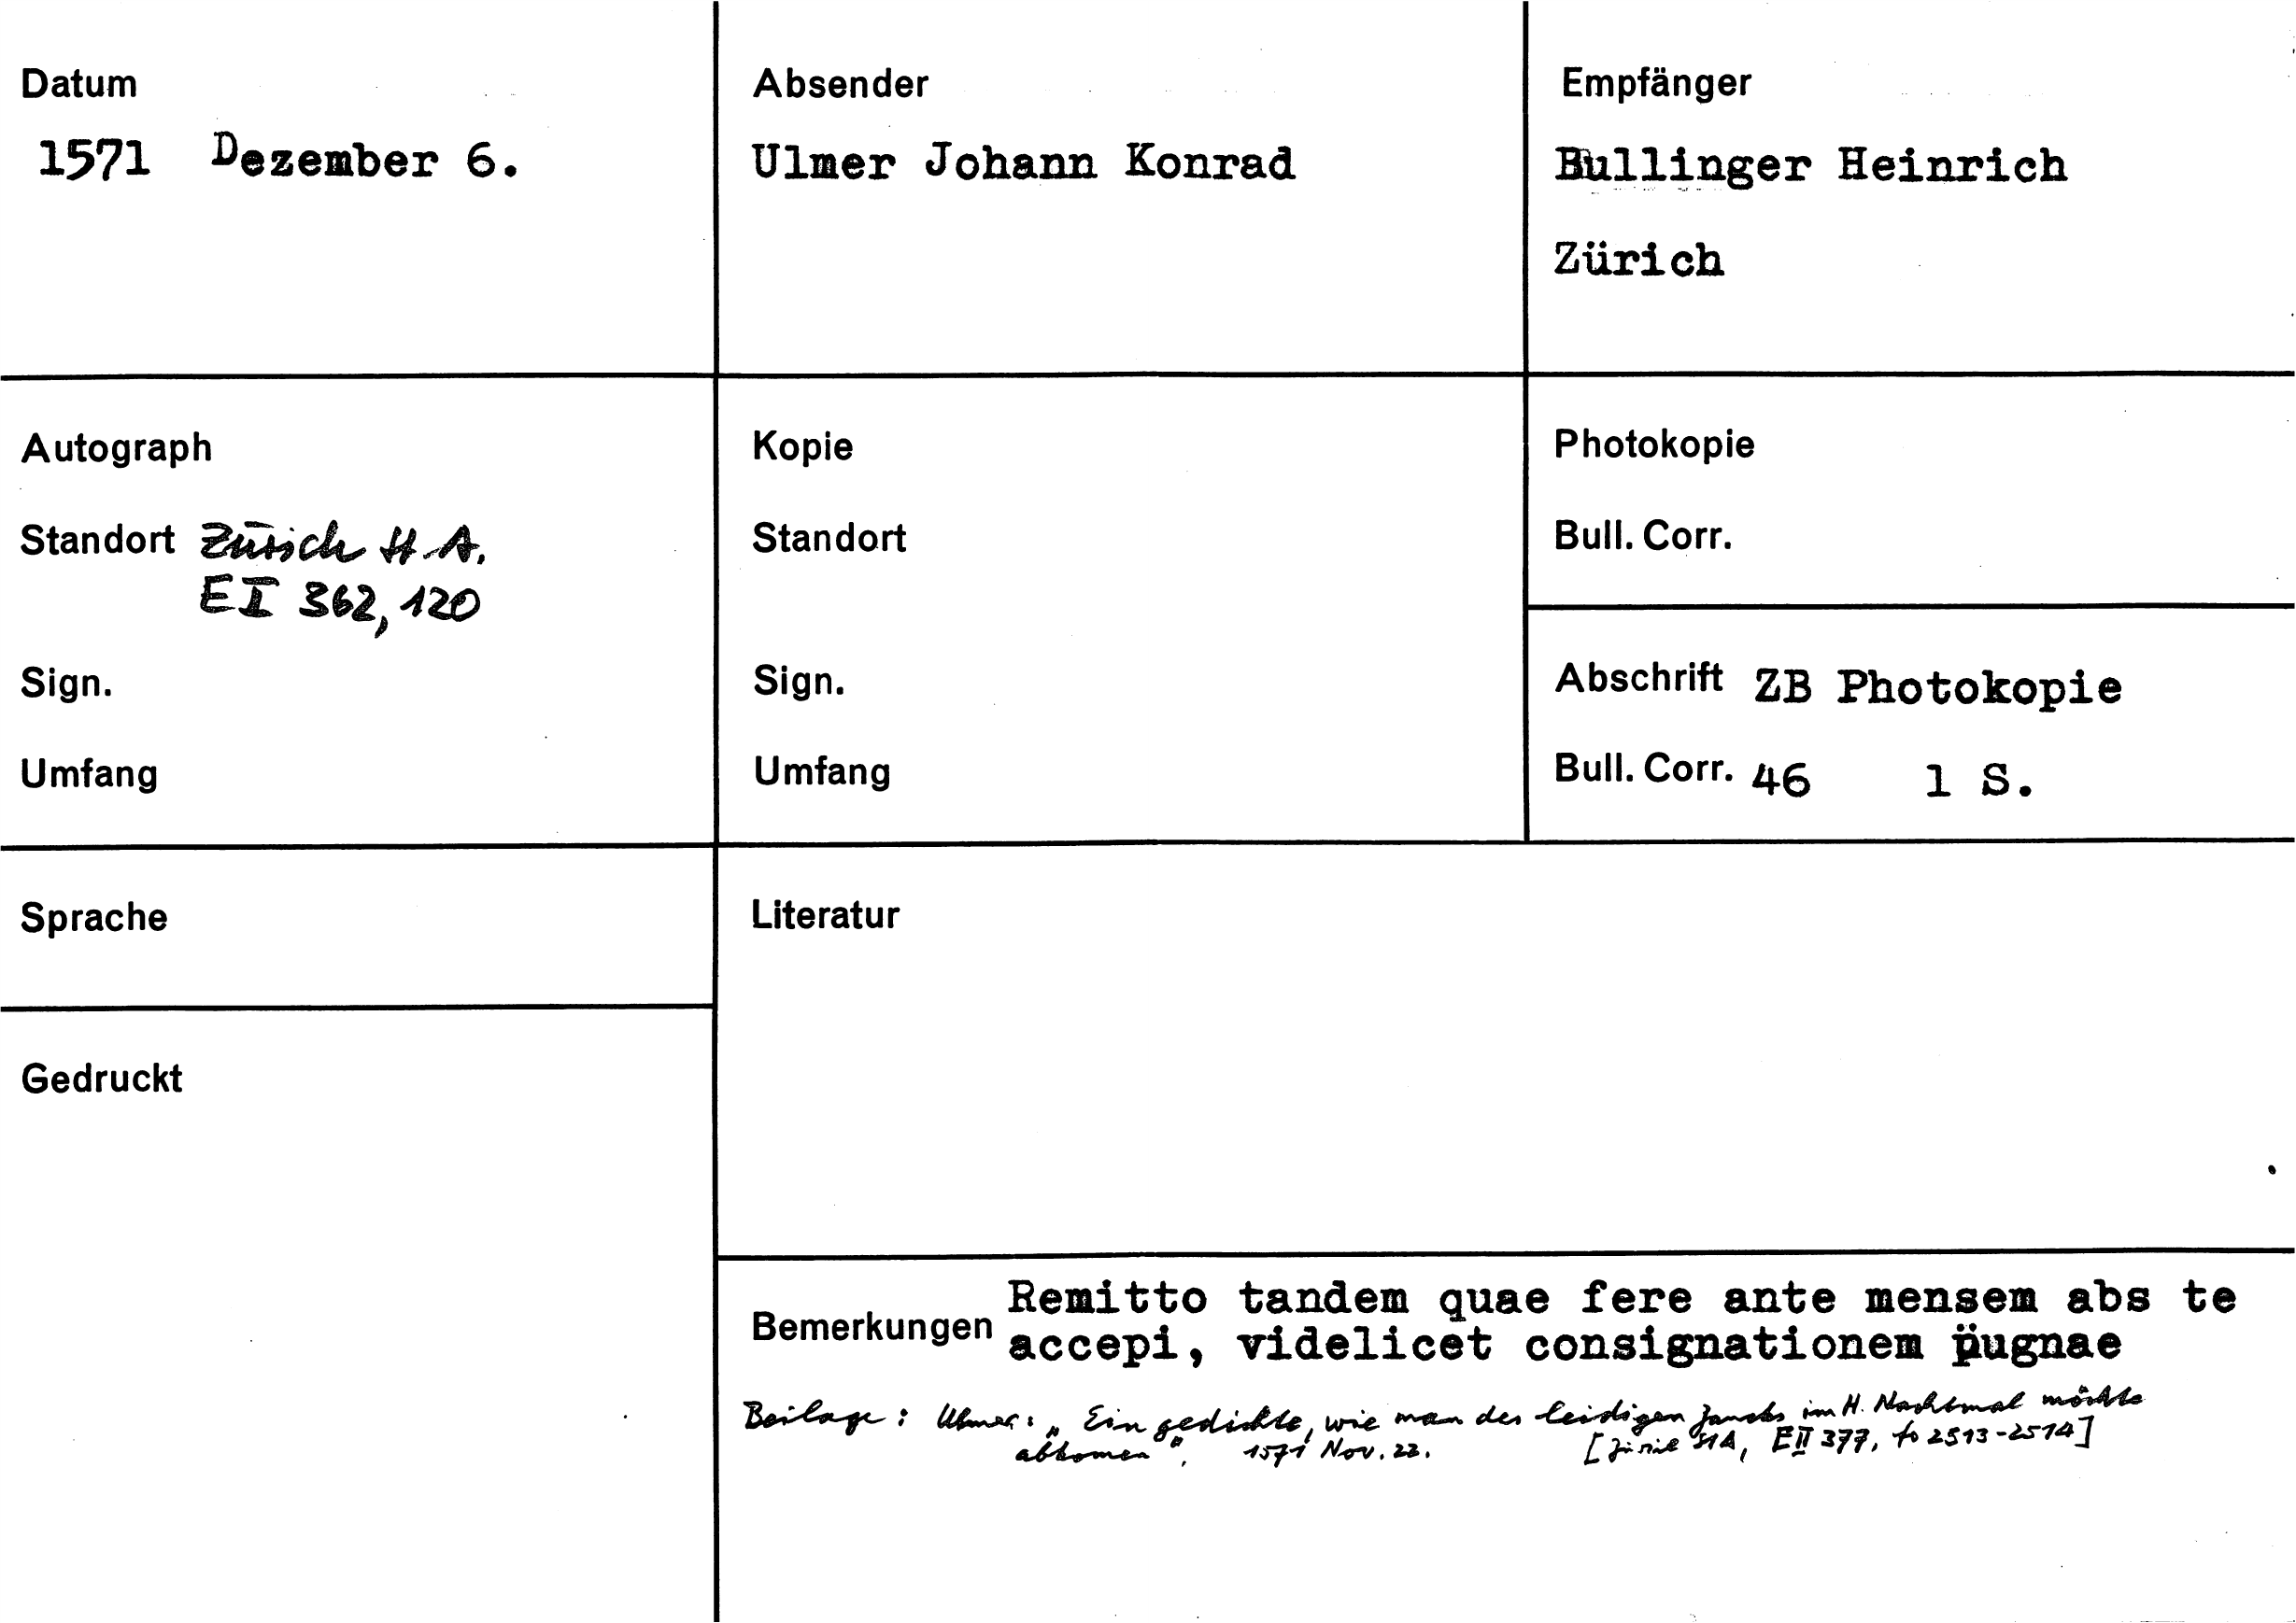 Datum
1571 Dezember 6.
Absender
Ulmer Johann Konrad
Empfänger
Bullinger Heinrich
Zürich
Autograph
Standort Zürich StA.
EI 362, 120
Sign.
Umfang
Kopie
Standort
Sign.
Umfang
Photokopie
Bull. Corr.
Abschrift ZB Photokopie
Bull. Corr. 46 1 S.
Sprache
Literatur
Gedruckt
Bemerkungen
Remitto tandem quae fere ante mensem abs te
accepi, videlicet consignationem pugnae
Beilage: Ulmer: „Ein gedichte, wie man des leidigen Zancks im H. Nachtmal möchte
abkomen", 1571 Nov. 22. [Zürich StA, EII 377, fo 2513-2514]